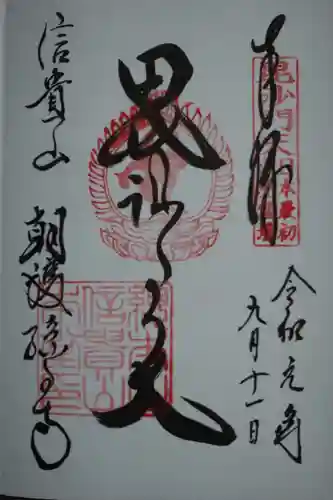 奉拝
毘沙門天日本最初
令和元年
九月十一日
毘沙門天
信貴山
朝護孫子寺